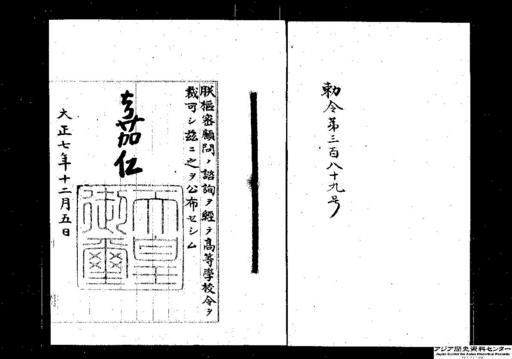 勅令第三百八十九号
朕枢密顧問ノ諮詢ヲ経テ高等学校令ヲ
裁可シ茲ニ之ヲ公布セシム
嘉仁
天皇
御璽
大正七年十二月五日
アジア歴史資料センター
Japan Center for Asian Historical Records